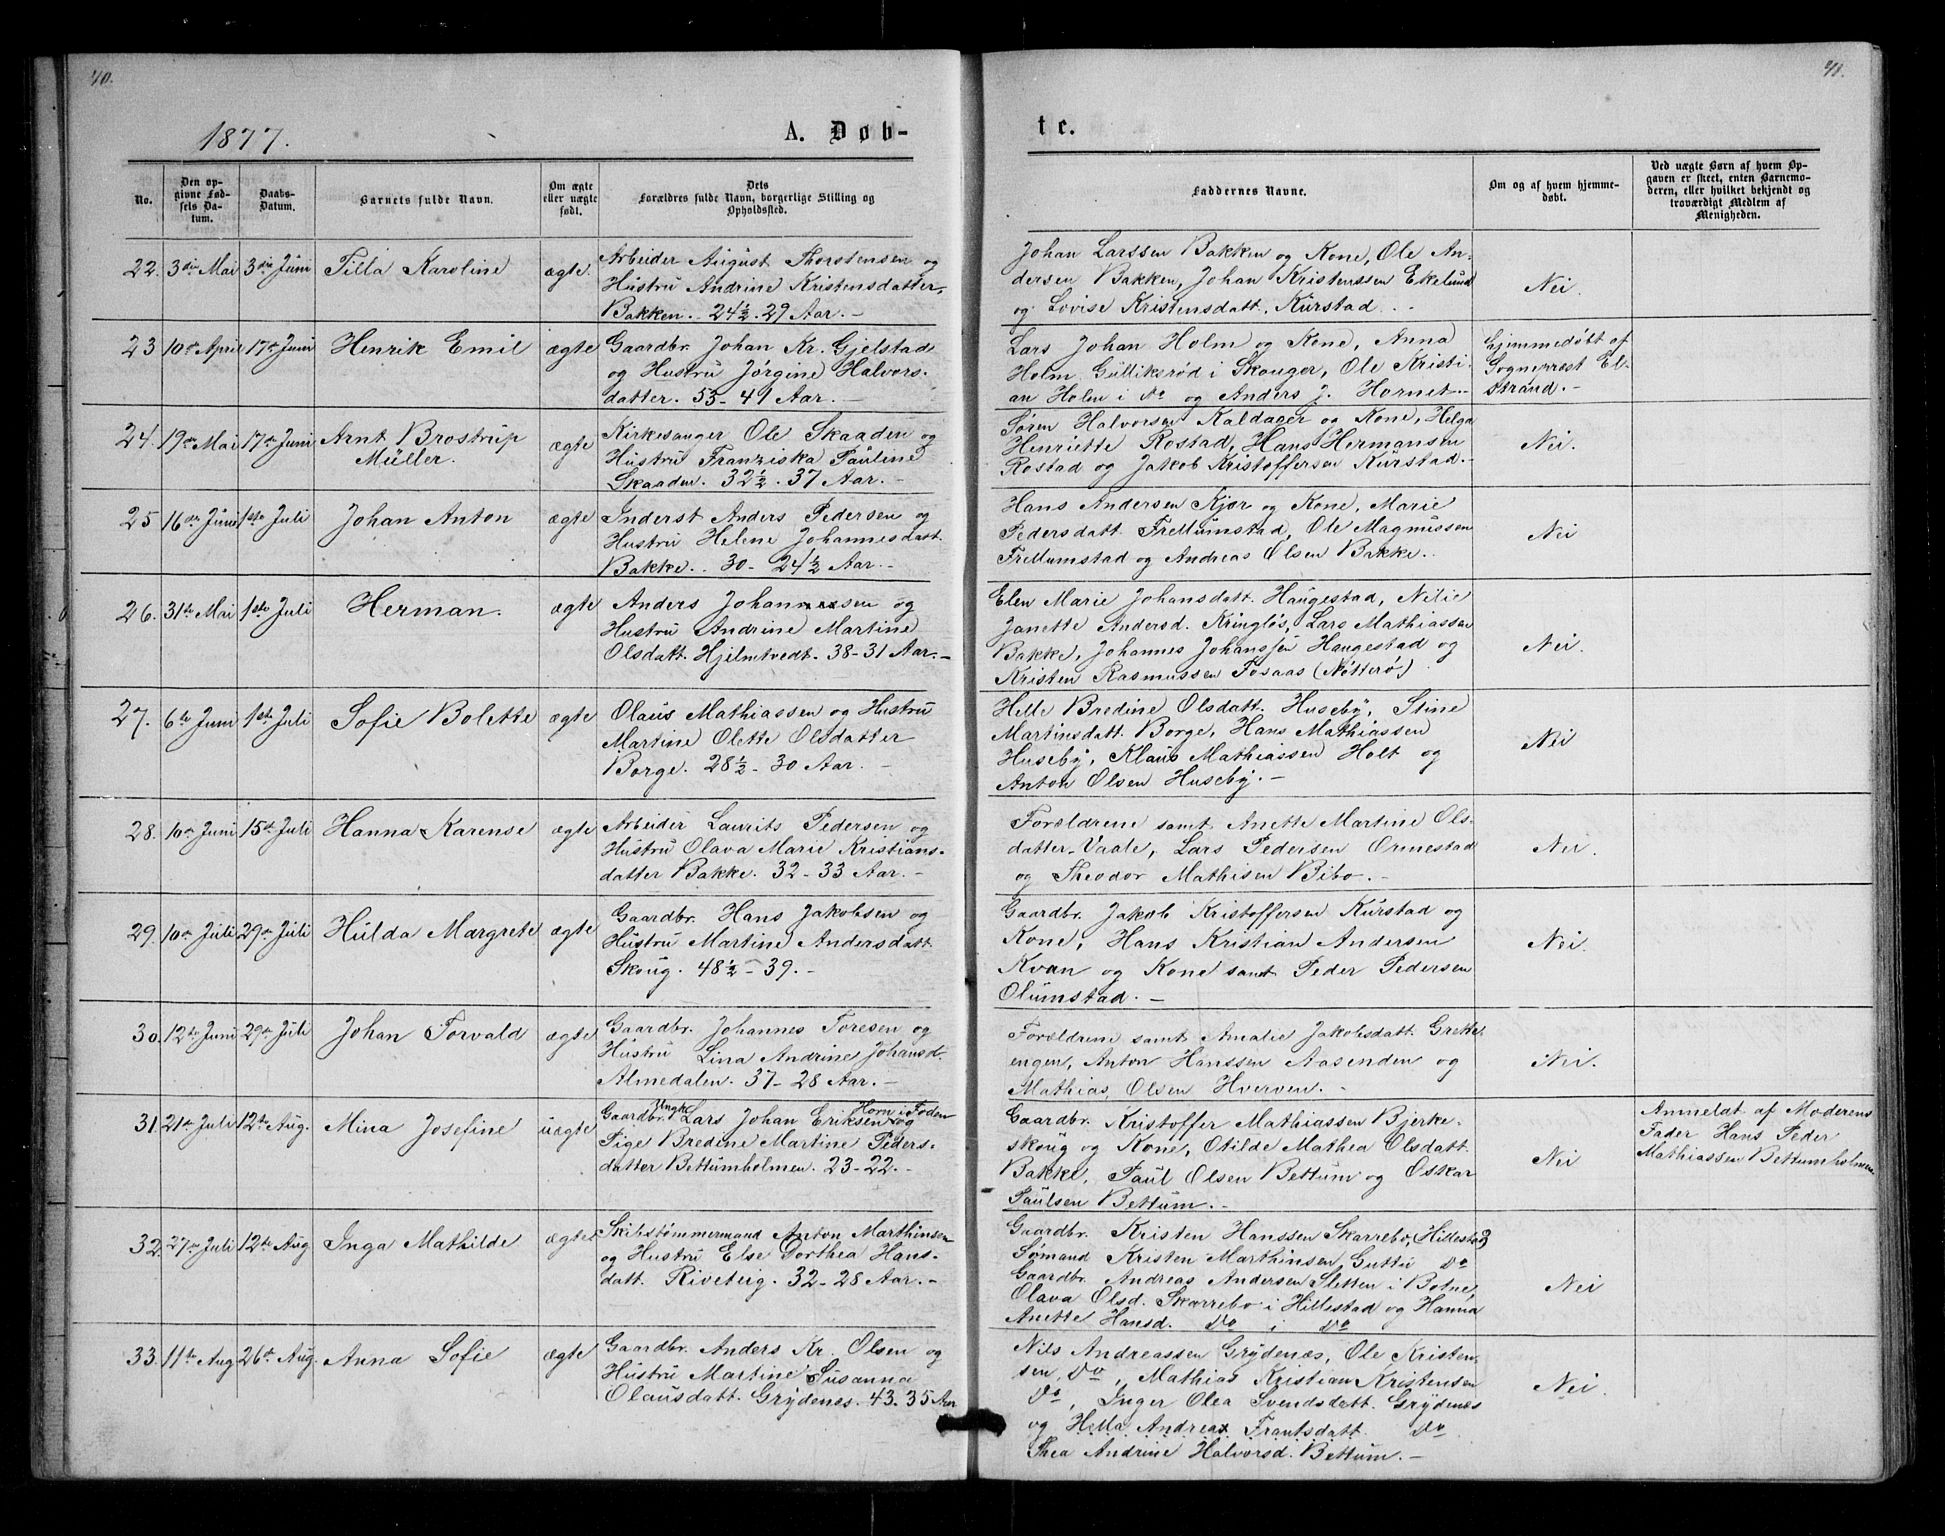 40.
41.
1877.
A. Døb-
te.
No.
Den op-
givne Fød-
sels Da-
tum.
Daabs-
Datum.
Barnets fulde Navn.
Om ægte
eller uægte
født.
Dets
Forældres fulde Navn, borgerlige Stilling og
Opholdssted.
Faddernes Navne.
Om og af hvem hjemme-
døbt.
Ved uægte Børn af hvem Op-
gaven er skeet, enten Barnemo-
deren, eller hvilket bekjendt og
troværdigt Medlem af
Menigheden.
22. 3die Mai 3die Juni Tilla Karoline ægte.
Arbeider August Thorstensen og
Hustru Andrine Kristensdatter,
Bakken. 24½. 29 Aar. -
Johan Larssen Bakken og Kone, Ole An-
dersen Bakken, Johan Kristenssen Ekelund
og Lovise Kristensdatt. Kürstad. -
Nei.
23 10de April 17de Juni Henrik Emil ægte
Gaardbr. Johan Kr. Gjelstad
og Hustru Jørgine Halvors-
datter. 53-41 Aar. -
Lars Johan Holm og Kone, Anna
Holm Gülliksrød i Skouger, Ole Kristi-
an Holm i do og Anders J. Hornet. -
Hjemmedøbt af
Sognepræst El-
strand. -
24. 19de Mai 17de Juni Arnt Brostrup
Müller. ægte
Kirkesanger Ole Skaaden og
Hustru Franziska Pauline
Skaaden. 32½. 37 Aar. -
Søren Halvorsen Kaldager og Kone, Helga
Henriette Rostad, Hans Hermansen
Rostad og Jakob Kristoffersen Kürstad. -
Nei.
25 16de Juni 1ste Juli Johan Anton ægte
Inderst Anders Pedersen og
Hustru Helene Johannesdatt.
Bakke. 30- 24½ Aar. -
Hans Andersen Kjær og Kone, Marie
Pedersdatt. Frellumstad, Ole Magnussen
Frellumstad og Andreas Olsen Bakke. -
Nei
26. 31te Mai 1ste Juli Herman. ægte
Anders Johannessen og
Hustru Andrine Martine
Olsdatt. Hjelmtvedt. 38-31 Aar. -
Elen Marie Johansdatt. Haugestad, Nilie
Janette Andersd. Kringløs, Lars Mathiassen
Bakke, Johannes Johanssen Haugestad og
Kristen Rasmussen Fosaas (Nøtterø)
Nei.
27. 6te Juni 1ste Juli Sofie Bolette ægte
Olaus Mathiassen og Hustru
Martine Olette Olsdatter
Borge. 28½- 30 Aar. -
Helle Bredine Olsdatt. Huseby, Stine
Martinsdatt. Borge, Hans Mathiassen
Huseby, Klaus Mathiassen Holt og
Anton Olsen Huseby. -
Nei
28. 10de Juni 15de Juli Hanna Karense ægte
Arbeider Laurits Pedersen og
Hustru Olava Marie Kristians-
datter Bakke. 32-33 Aar. -
Forældrene samt Anette Martine Ols-
datter Vaale, Lars Pedersen Ormestad
og Theodor Mathisen Bibo. -
Nei.
29. 10de Juli 29de Juli Hulda Margrete ægte
Gaardbr. Hans Jakobsen og
Hustru Martine Andersdatt.
Skoug. 48½-39. -
Gaardbr. Jakob Kristoffersen Kürstad og
Kone, Hans Kristian Andersen
Kvan og Kone samt Peder Pedersen
Olumstad. -
Nei.
30. 12te Juni 29de Juli Johan Torvald ægte
Gaardbr. Johannes Toresen og
Hustru Lina Andrine Johansd.
Almedalen. 37-28 Aar. -
Forældrene samt Amalie Jakobsdatt. Grette-
engen, Anton Hanssen Aasenden og
Mathias Olsen Hverven. -
Nei.
31. 21de Juli 12te Aug. Mina Josefine uægte
Gaardbr. Ungk. Lars Johan Eriksen Horn i Foden og
Pige Bredine Martine Peders-
datter Bettumholmen. 23-22. -
Gaardbr. Kristoffer Mathiassen Bjerke-
skoug og Kone, Otilde Mathea Olsdatt.
Bakke, Paul Olsen Bettum og Oskar
Paulsen Bettum. -
Nei
Anmeldt af Moderens
Fader Hans Peder
Mathiassen Bettumholmen
32. 27de Juli 12te Aug Inga Mathilde ægte
Skibstømmermand Anton Marthinsen
og Hustru Else Dorthea Hans-
datt. Riveteig. 32-28 Aar. -
Gaardbr. Kristen Hanssen Skarrebo, (Hillestad)
Sømand Kristen Marthinsen, Guttu do
Gaardbr. Andreas Andersen Sletten i Botne,
Olava Olsd. Skarrebo i Hillestad og Hanna
Anette Hansd. do i do
Nei
33. 11te Aug 26de Aug. Anna Sofie ægte
Gaardbr. Anders Kr. Olsen og
Hustru Martine Susanna
Olausdatt. Grydenes. 43. 35 Aar
Nils Andreassen Grydenæs, Ole Kristen-
sen, do, Mathias Kristian Kristensen
do, Inger Olea Svendsdatt. Grydenæs
og Hella Andrea Frantsdatt do
Thea Andrine Halvorsd. Bettum. -
Nei.